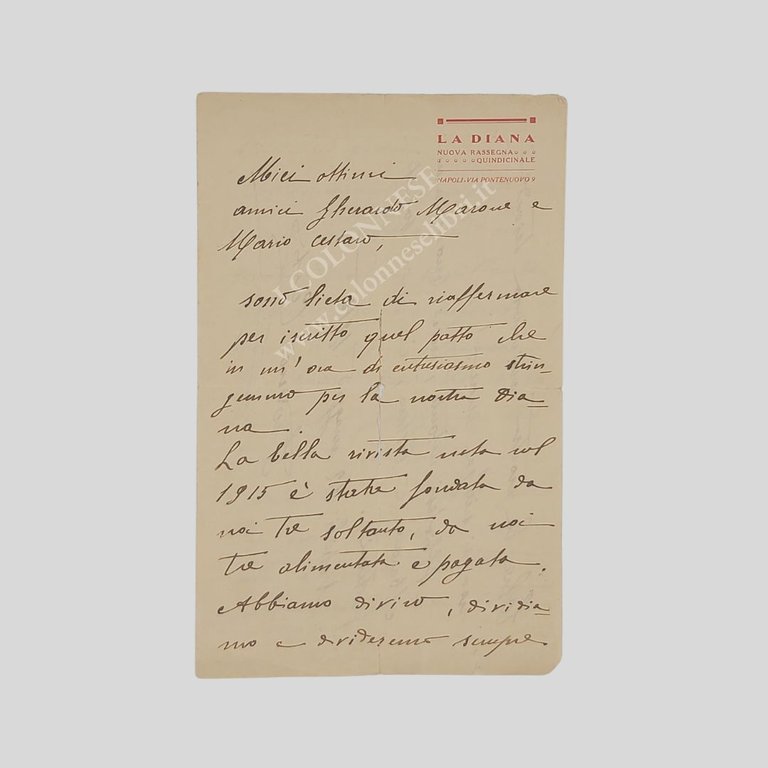 LA DIANA
NUOVA RASSEGNA
QUINDICINALE
NAPOLI-VIA PONTENUOVO 9
Miei ottimi
amici Gherardo Marone e
Mario Cestaro,
sono lieta di riaffermare
per iscritto quel patto che
in un'ora di entusiasmo strin-
gemmo per la nostra Dia-
na.
La bella rivista nata nel
1915 è stata fondata da
noi tre soltanto, da noi
tre alimentata e pagata.
Abbiamo diviso, dividia-
mo e divideremo sempre
COLONNESE
www.colonneselibri.it